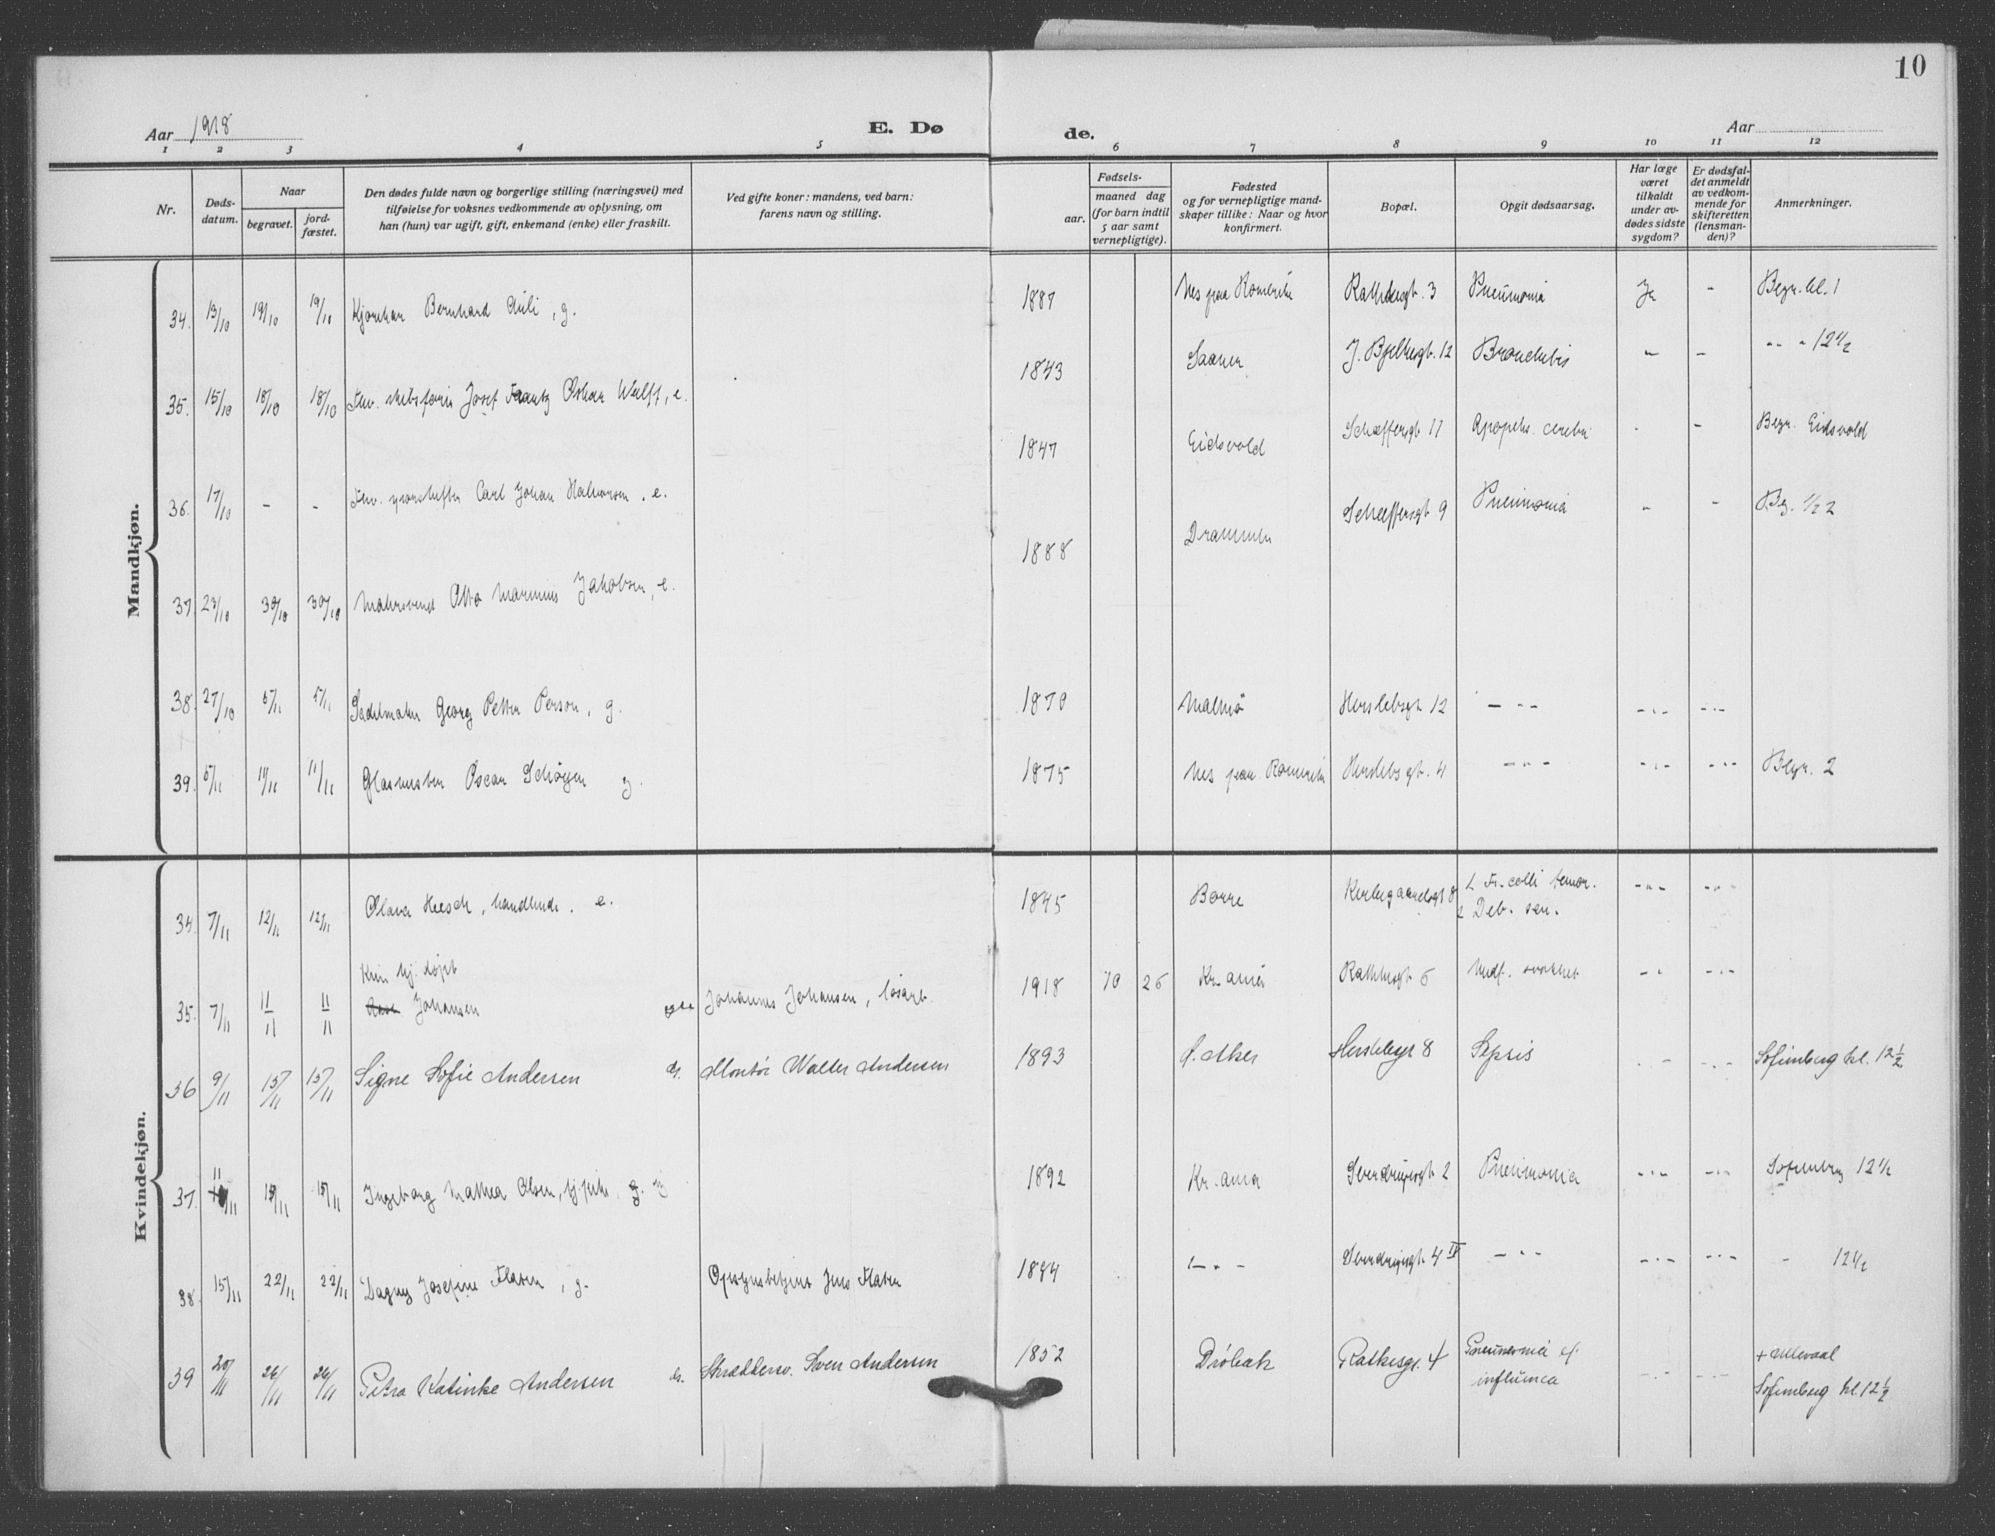 10
Aar 1918
E. Dø
de.
Aar
1 2 3 4 5 6 7 8 9 10 11 12
Nr.
Døds-
datum.
Naar
begravet.
jord-
fæstet.
Den dødes fulde navn og borgerlige stilling (næringsvei) med
tilføielse for voksnes vedkommende av oplysning, om
han (hun) var ugift, gift, enkemand (enke) eller fraskilt.
Ved gifte koner: mandens, ved barn:
farens navn og stilling.
Fødsels-
aar.
maaned dag
(for barn indtil
5 aar samt
vernepligtige).
Fødested
og for vernepligtige mand-
skaper tillike: Naar og hvor
konfirmert.
Bopæl.
Opgit dødsaarsag.
Har læge
været
tilkaldt
under av-
dødes sidste
sygdom?
Er dødsfal-
det anmeldt
av vedkom-
mende for
skifteretten
(lensman-
den)?
Anmerkninger.
Mandkjøn.
34. 13/10 19/10 19/10 Bernhard , g. 1887 Nes paa Romerike 3 Pneumonia Ja - Begr. kl. 1
35. 15/10 18/10 18/10 Josef Frantz Oskar Wulff, e. 1843 Saaner J. Bjelkesgt. 12 Bronchitis - - - - - 12 1/2
36. 17/10 - - Carl Johan Halvorsen, e. 1847 Eidsvold Schæffersgt 11 Apopleks. cerebri - - Begr. Eidsvold
37. 23/10 30/10 30/10 Otto Marinius Jakobsen, e. 1888 Drammen Schæffersgt 9 Pneumonia - - Beg. 1/2 2
38. 27/10 5/11 5/11 Sadelmaker Georg Petter Person, g. 1870 Malmø Herslebsgt. 12 - " - - " - - " -
39. 5/11 11/11 11/11 Glasmester Oscar g. 1875 Nes paa Romerike Herslebsgt. 4 - " - - " - - " - Begr. 2
Kvindekjøn.
34. 7/11 12/11 12/11 Olava Heesch, handlende. e. 1845 Borre 1 Fr. colli femor.
2 Deb. sen. - " - - " -
Kun hj. døpt
35. 7/11 11/11 11/11 Johansen Johannes Johansen, løsarb. 1918 10 26 Kr.ania 6 Medf. svakhet - " - - " -
36 9/11 15/11 15/11 Signe Sofie Andersen Montør Walter Andersen 1893 Ø. Aker Herslebsgt 8 Sepsis - " - - " - Sofienberg kl. 12 1/2
37. 11/11 15/11 15/11 Ingeborg Mathea Olsen, 1892 Kr.ania 2 Pneumonia - " - - " - Sofienberg 12 1/2
38. 15/11 22/11 22/11 Dagny Josefine Flaten, g. Opsynsbetjent Jens Flaten - " - 4 IV - " - - " - - " - - 12 1/2
39 20/11 26/11 26/11 Petra Katinke Andersen Skræddersv. Sven Andersen 1852 Drøbak Rathkesgt. 4 Pneumonia &
influenca - " - - " - + Ullevaal
Sofienberg kl 12 1/2